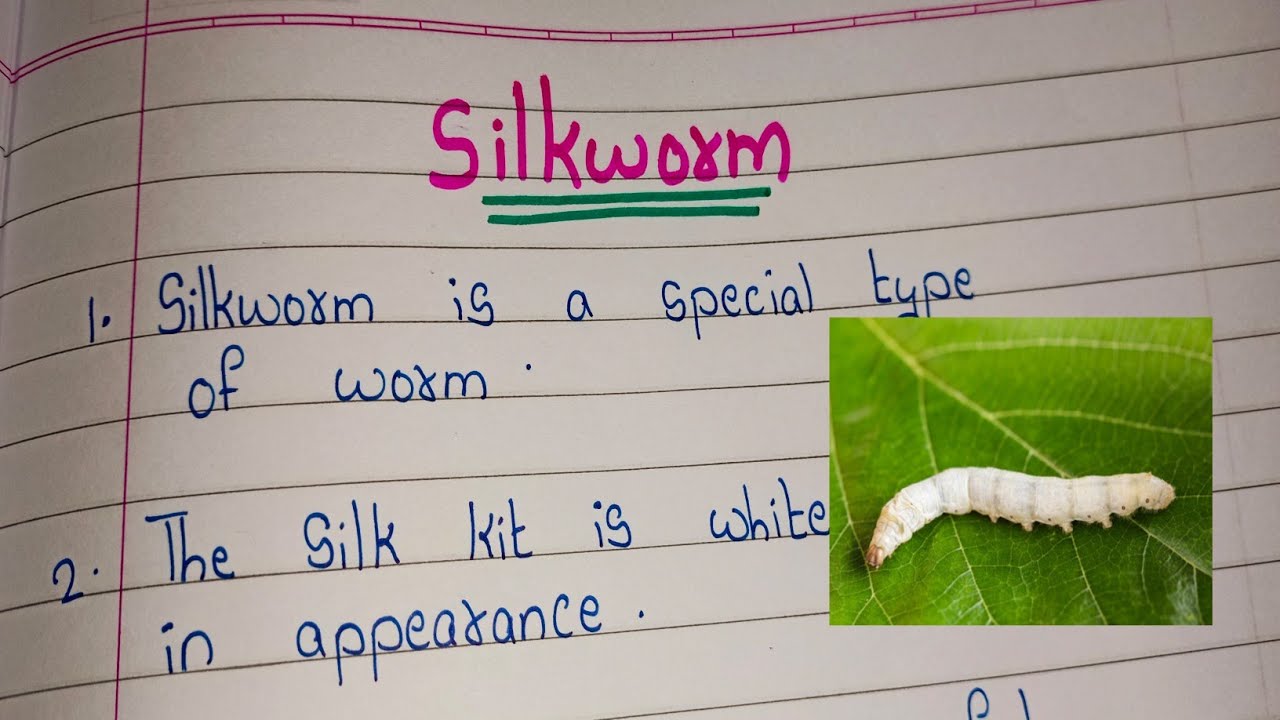 Silkworm
1. Silkworm is a special type
of worm.
2. The Silk kit is white
in appearance.